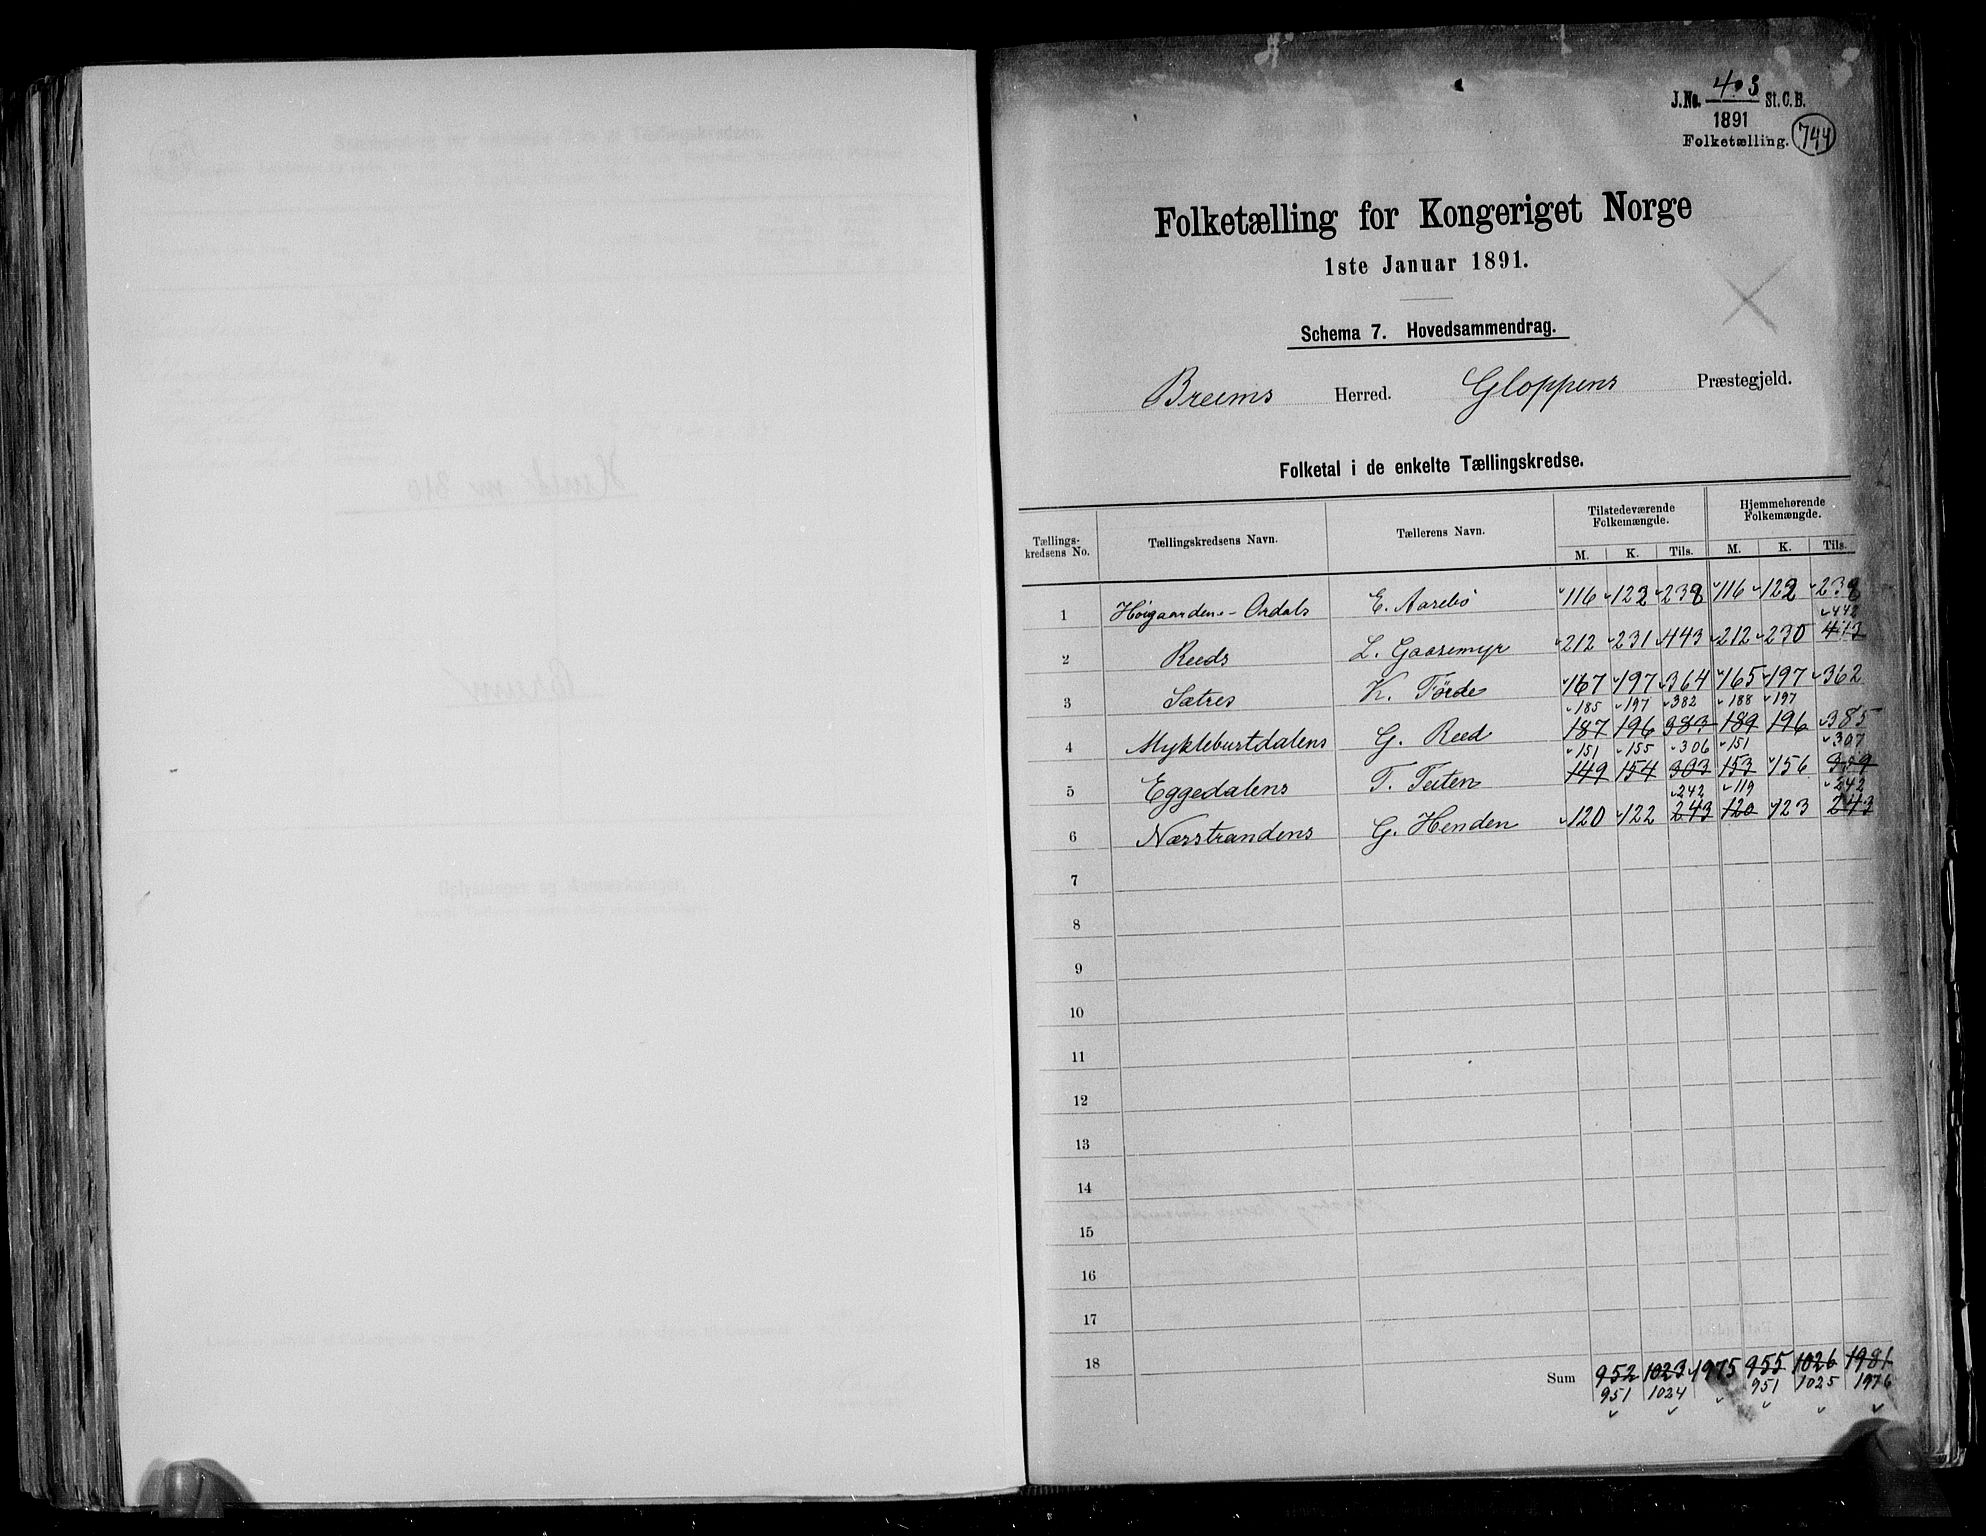 J.No. 403 St. C. B.
1891
Folketælling. 744
Folketælling for Kongeriget Norge
1ste Januar 1891.
Schema 7. Hovedsammendrag.
Breims Herred. Gloppens Præstegjeld.
Folketal i de enkelte Tællingskredse.
Tællings-kredsens No. Tællingskredsens Navn. Tællerens Navn. Tilstedeværende Folkemængde. Hjemmehørende Folkemængde.
M. K. Tils. M. K. Tils.
1 Høigaardene-Ordals E. Aarebø 116 122 238 116 122 238
442
2 Reeds L. Gaasemyr 212 231 443 212 230 443
3 Sætres K. Førde 167 197 364 165 197 362
185 197 382 188 197
4 Myklebustdalens G. Reed 187 196 383 189 196 385
151 155 306 151 307
5 Eggedalens T. Teiten 149 154 303 153 156 309
242 119 242
6 Nærstrandens G. Henden 120 122 243 120 123 243
7
8
9
10
11
12
13
14
15
16
17
18
Sum 952 1023 1975 955 1026 1981
951 1024 951 1025 1976